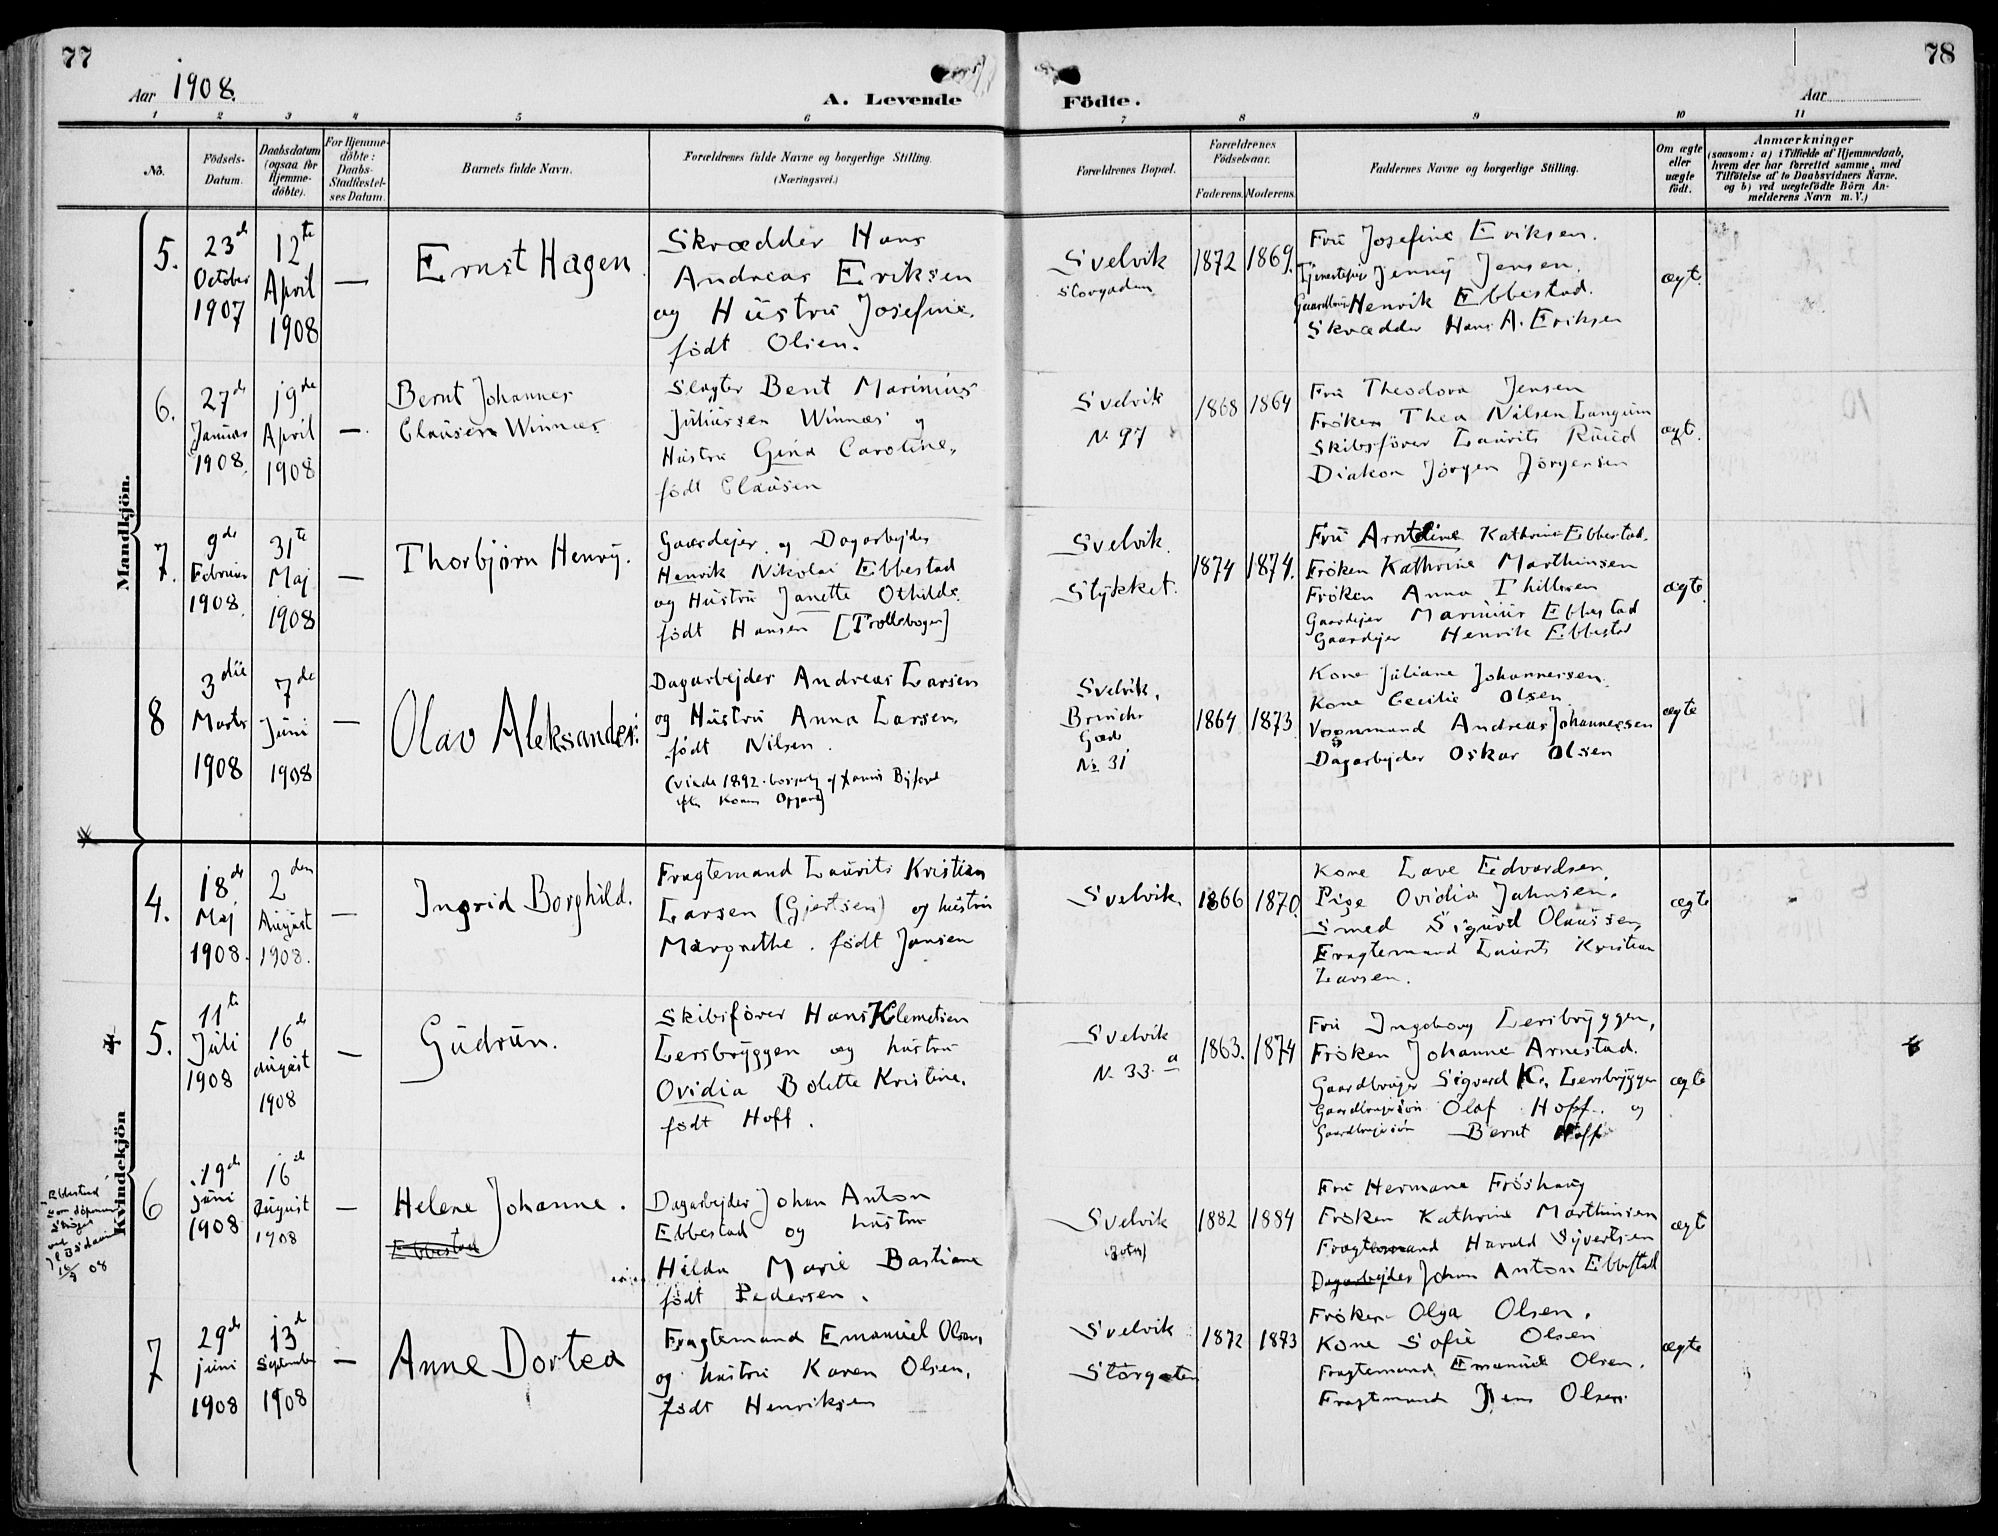 77
Aar 1908.
A. Levende
Födte.
Aar
78
1 2 3 4 5 6 7 8 9 10 11
No.
Födsels-
Datum.
Daabsdatum
(ogsaa for
Hjemme-
döbte).
For Hjemme-
döbte:
Daabs-
Stadfæstel-
ses Datum.
Barnets fulde Navn.
Forældrenes fulde Navne og borgerlige Stilling.
(Næringsvei.)
Forældrenes Bopæl.
Forældrenes
Födselsaar.
Faderens.
Moderens.
Faddernes Navne og borgerlige Stilling.
Om ægte
eller
uægte
födt.
Anmærkninger
(saasom: a) i Tilfælde af Hjemmedaab,
hvem der har forrettet samme, med
Tilföielse af to Daabsvidners Navne.
og b) ved uægtefödte Börn An-
melderens Navn m. V.)
Mandkjön.
5.
23d
October
1907
12te
April
1908
—
Ernst Hagen
Skrædder Hans
Andreas Eriksen
og Hüstrü Josefine,
født Olsen.
Svelvik
Storgaden
1872
1869.
Frü Josefine Eriksen.
Jenny Jensen.
Henrik Ebbestad.
Skrædder Hans A. Eriksen
ægt.
6.
27de
Januar
1908.
19de
April
1908
—
Bernt Johannes
Clausen Winnæs
Slagter Bent Marinius
Júliússen Winnæs og
Hüstrü Gina Caroline,
født Claüsen
Svelvik
N. 97
1868
1864
Frü Theodora Jensen
Frøken Thea Nilsen Langüm
Skibsfører Laürits Rüüd
Diakon Jørgen Jørgensen
ægt.
7.
9de
Februar
1908.
31te
Maj
1908
—
Thorbjørn Henry.
Gaardejer og Dagarbejder
Henrik Nikolai Ebbestad
og Hüstrü Janette Othilde
født Hansen [Trollsbogen]
Svelvik.
Stykket.
1874
1874.
Frü Arntine Kathrine Ebbestad.
Frøken Kathrine Marthinsen
Frøken Anna Thillesen
Gaardejer Mariniüs Ebbestad
Gaardejer Henrik Ebbestad
ægte.
8
3die
Marts
1908
7de
Jüni
1908
—
Olav Aleksander.
Dagarbejder Andreas Larsen
og Hüstrü Anna Larsen,
født Nilsen.
Svelvik.
No 31
1864
1873
Kone Jüliane Johannessen.
Kone Cecilie Olsen
Vognmand Andreas Johannessen
Dagarbejder Oskar Olsen
ægte
Kvindekjön
4.
18de
Maj
1908.
2den
Aügüst
1908.
—
Ingrid Borghild.
Fragtemand Laürits Kristian
Larsen (Gjertsen) og hüstrü
Margrethe. født Jansen
Svelvik.
1866
1870.
Kone Lave Edvardsen,
Pige Ovidia Jahnsen.
Smed Sigürd Olaüssen,
Fragtemand Laürits Kristian
Larsen.
ægte
5.
11te
Jüli
1908
16de
aügüst
1908
—
Güdrün.
Skibsfører Hans Klemetsen
Lersbryggen og hüstrü
Ovidia Bolette Kristine,
født Hoff.
Svelvik
N. 33. a
1863.
1874
Frü Ingeborg Lersbryggen,
Frøken Johanne Arnestad.
Gaardbrüger Sigvard K. Lersbryggen
Gaardbrugersøn Olaf Hoff. og
Gaardbrugersøn Bernt Hoff
ægte
6
19de
Jüni
1908
16de
aügüst
1908
—
Helene Johanne.
Ebbestad
Dagarbejder Johan Anton
Ebbestad og hüstrü
Hilda Marie Bastiane
født Pedersen.
Svelvik
1882
1884
Frü Hermane Frøshaug
Frøken Kathrine Marthinsen
Fragtemand Harald Syvertsen
Dagarbejder Johan Anton Ebbestad
ægt
7
29de
jüni
1908
13de
September
1908
—
Anne Dortea
Fragtemand Emanuel Olsen,
og hüstrü Karen Olsen,
født Henriksen
Svelvik
Storgaten
1872
1873
Frøken Olga Olsen.
Kone Sofie Olsen
Fragtemand Emanüel Olsen.
Fragtemand Jens Olsen.
ægte